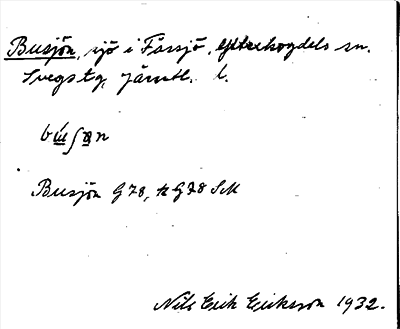 Busjön, sjö i Fåssjö, Ytterhogdals sn.
Svegs tg, Jämtl. l.
Busjön G 78, G 78 StK
Nils Erik Eriksson 1932.